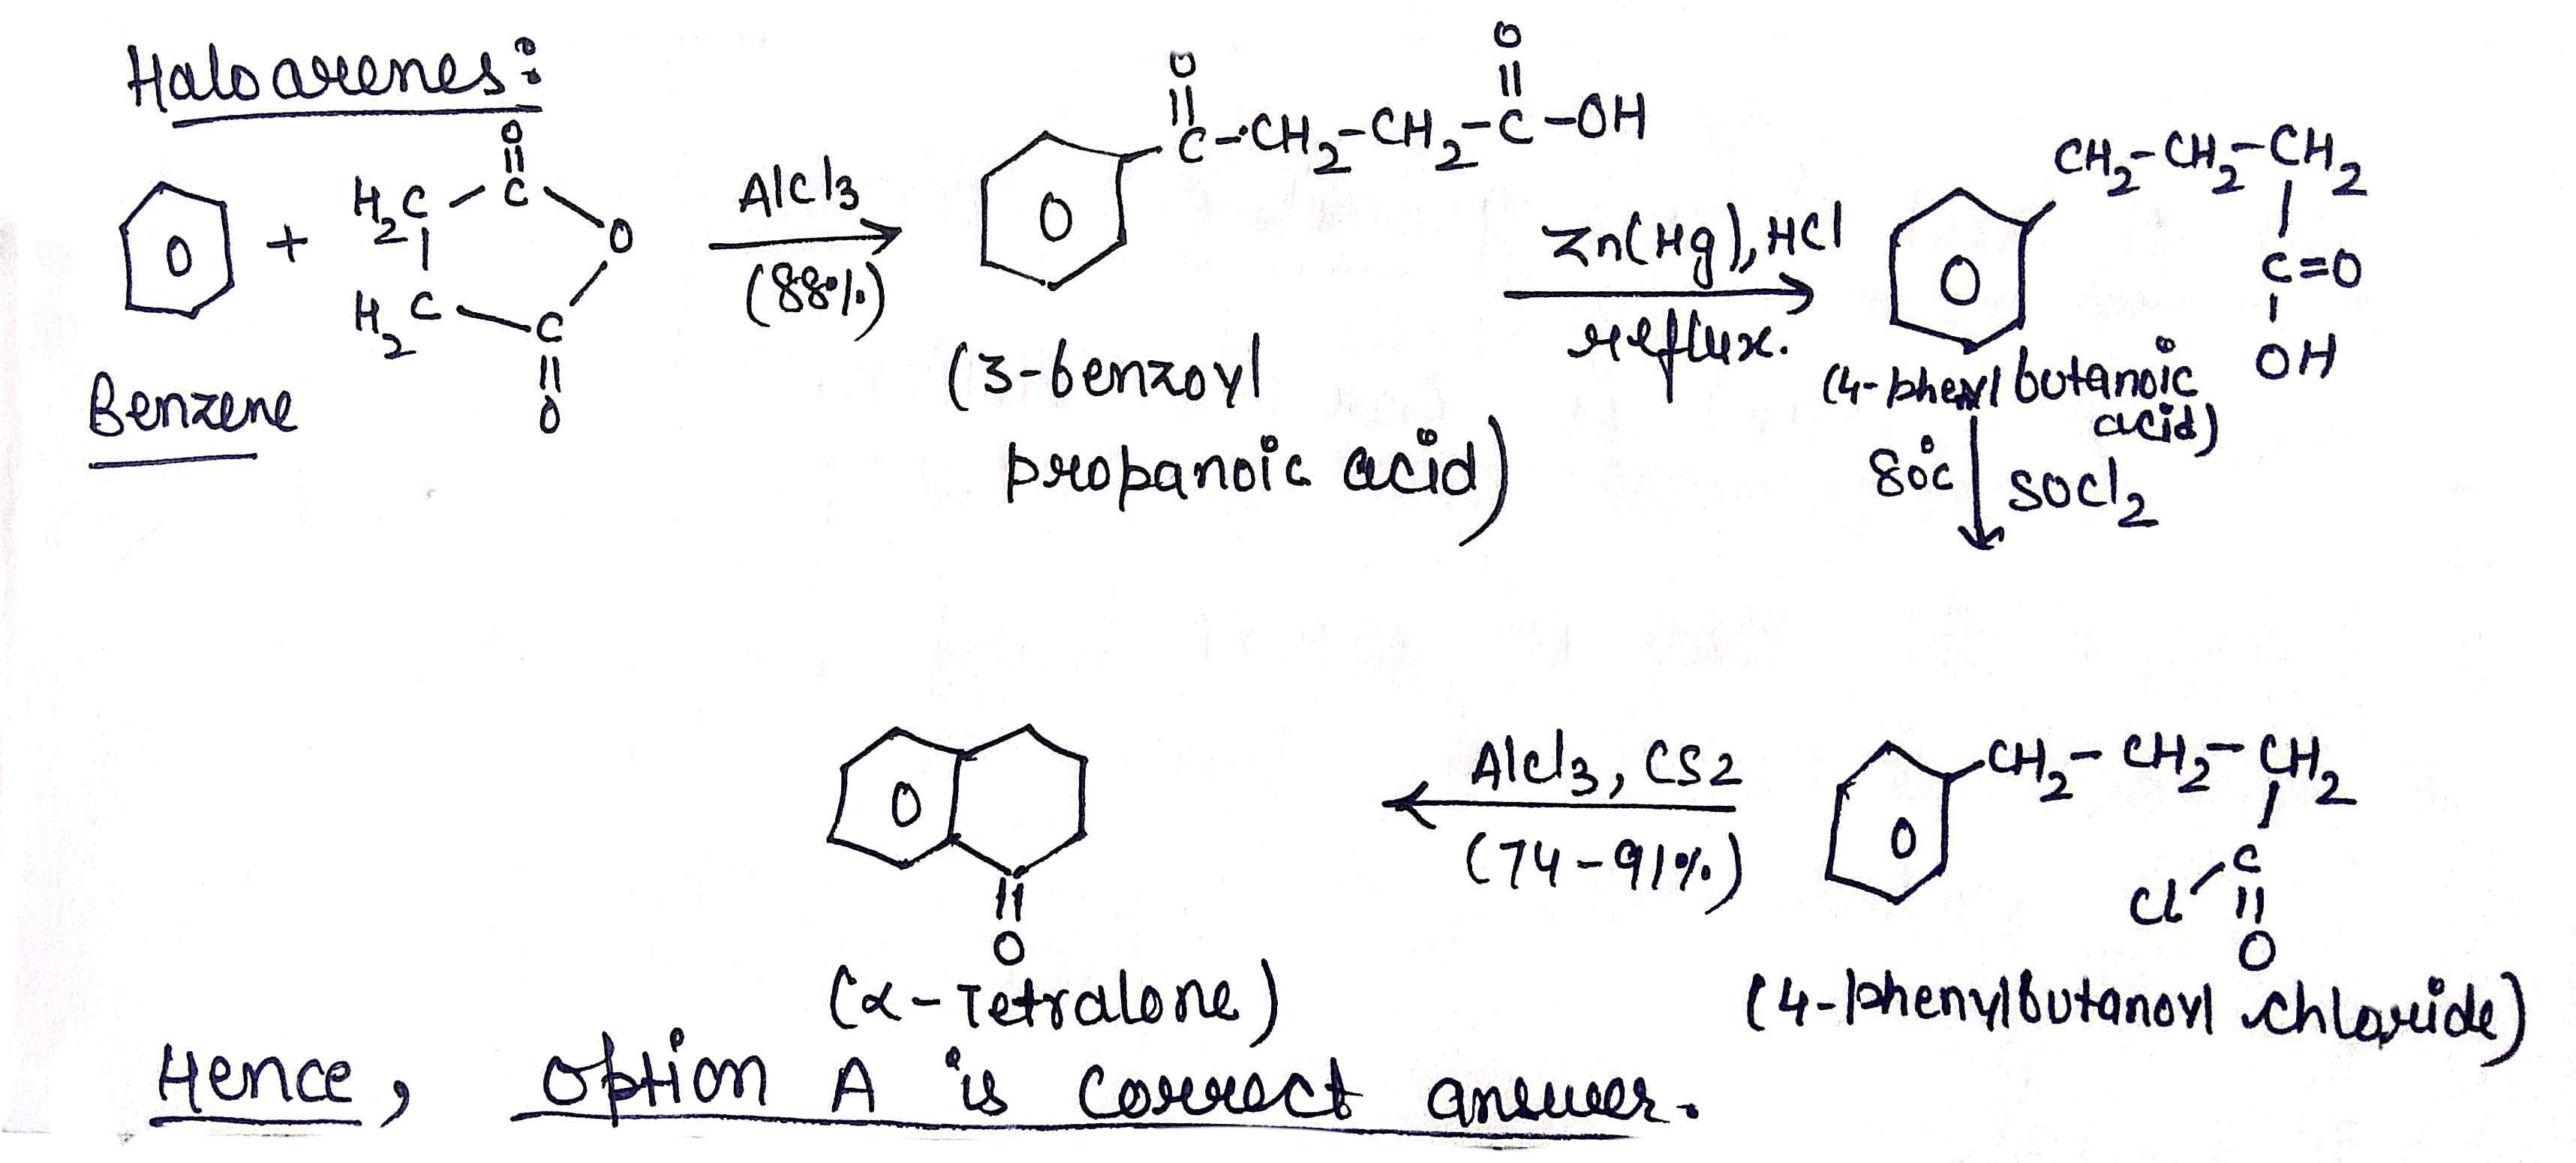 Haloarenes:
O
H2C - C
+
O
H2C C
O
Benzene
AlCl3
(88%)
O O
C-CH2-CH2-C-OH
(3-benzoyl
propanoic acid)
Zn(Hg), HCl
reflux.
CH2-CH2-CH2
C=O
OH
(4-phenyl butanoic
acid)
80°C SOCl2
CH2-CH2-CH2
C
Cl
O
(4-phenylbutanoyl chloride)
AlCl3, CS2
(74-91%)
O
(α-Tetralone)
Hence, option A is correct answer.